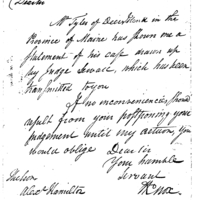 Mr Tyler of Deer Island in the
Province of Maine has shown me a
statement of his case drawn up
by Judge Sewall, which has been
transmitted to you
If no inconveniences should
result from your postponing your
judgement until my return, you
would oblige Dear sir
Your humble
servant
HKnox
Alexr Hamilton